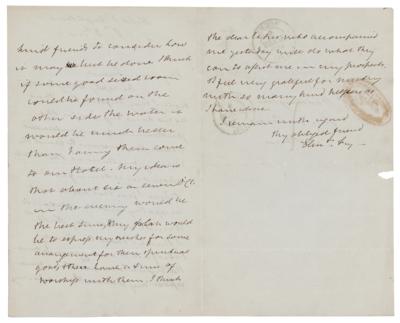 kind friends to consider how
it may be best be done I think
if some good sized room
could be found on the
other side the water it
would be much better
than having them come
to an Hotel. My idea is
that about six or seven o'Cl.
in the evening would be
the best time, & my plan would
be to express my wishes for some
arrangement for their spiritual
good & then have a time of
worship with them. I think
the dear Ladies who accompanied
me yesterday will do what they
can to assist me in my prospects.
I feel very grateful for meeting
with so many kind helpers as
I have done.
I remain with regard
thy obliged friend
Eliz.th Fry